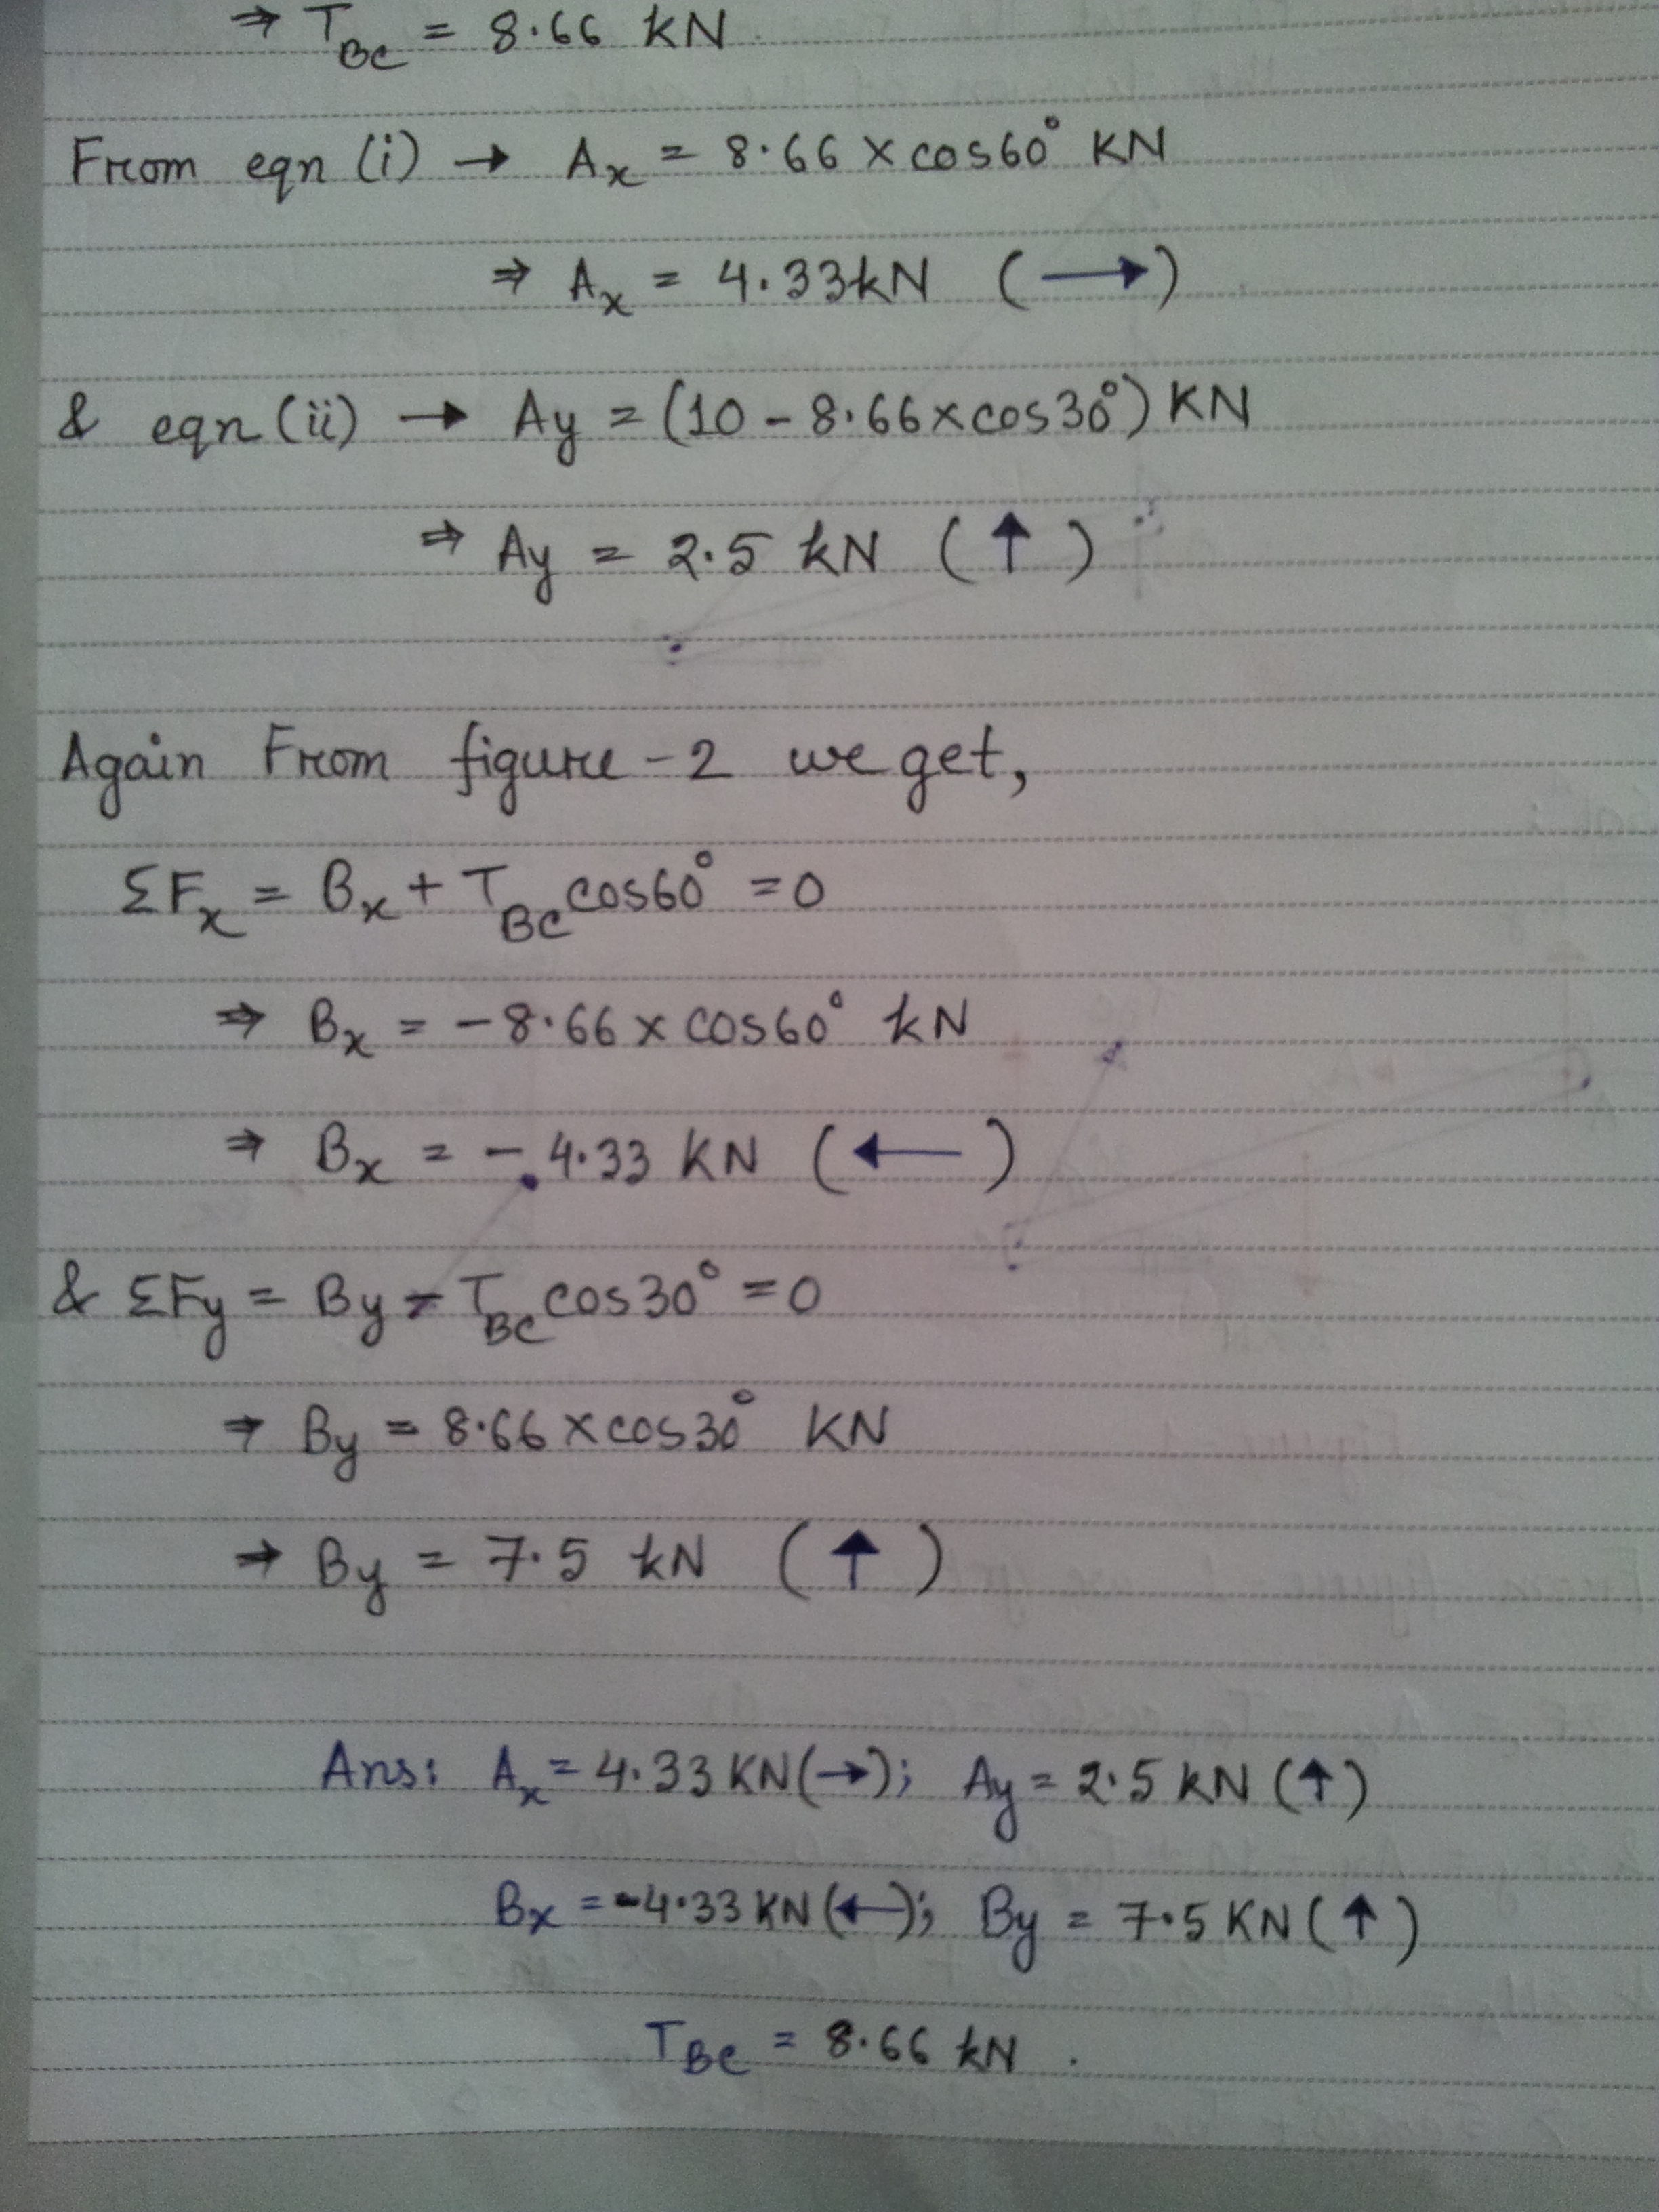 ⇒ T_BC = 8.66 KN
From eqn (i) → A_x = 8.66 × cos60° KN
⇒ A_x = 4.33 kN (→)
& eqn (ii) → Ay = (10 - 8.66 × cos30°) KN
⇒ Ay = 2.5 kN (↑)
Again From figure - 2 we get,
ΣF_x = B_x + T_BC cos60° = 0
⇒ B_x = - 8.66 × cos60° kN
⇒ B_x = - 4.33 KN (←)
& ΣFy = By - T_BC cos30° = 0
⇒ By = 8.66 × cos30° KN
⇒ By = 7.5 kN (↑)
Ans: A_x = 4.33 KN (→); Ay = 2.5 kN (↑)
B_x = -4.33 KN (←); By = 7.5 KN (↑)
T_BC = 8.66 kN .